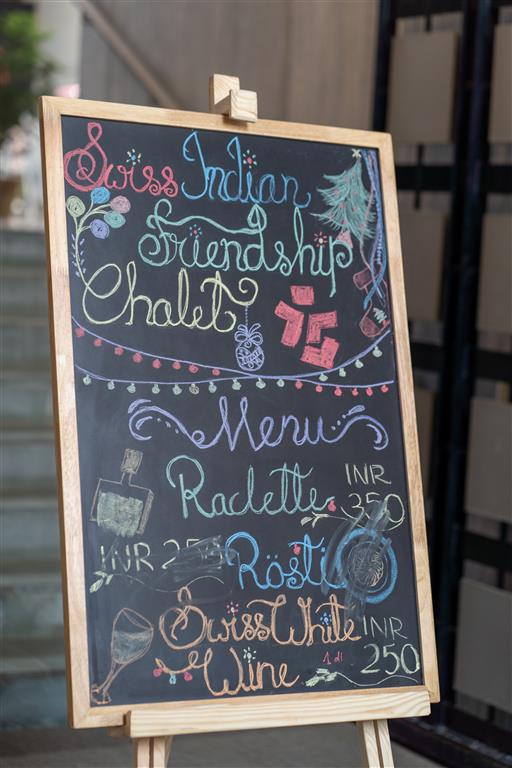 Swiss Indian
Friendship
Chalet
Menu
Raclette INR
350
INR 25
Rösti
Swiss White INR
Wine 1 dl 250